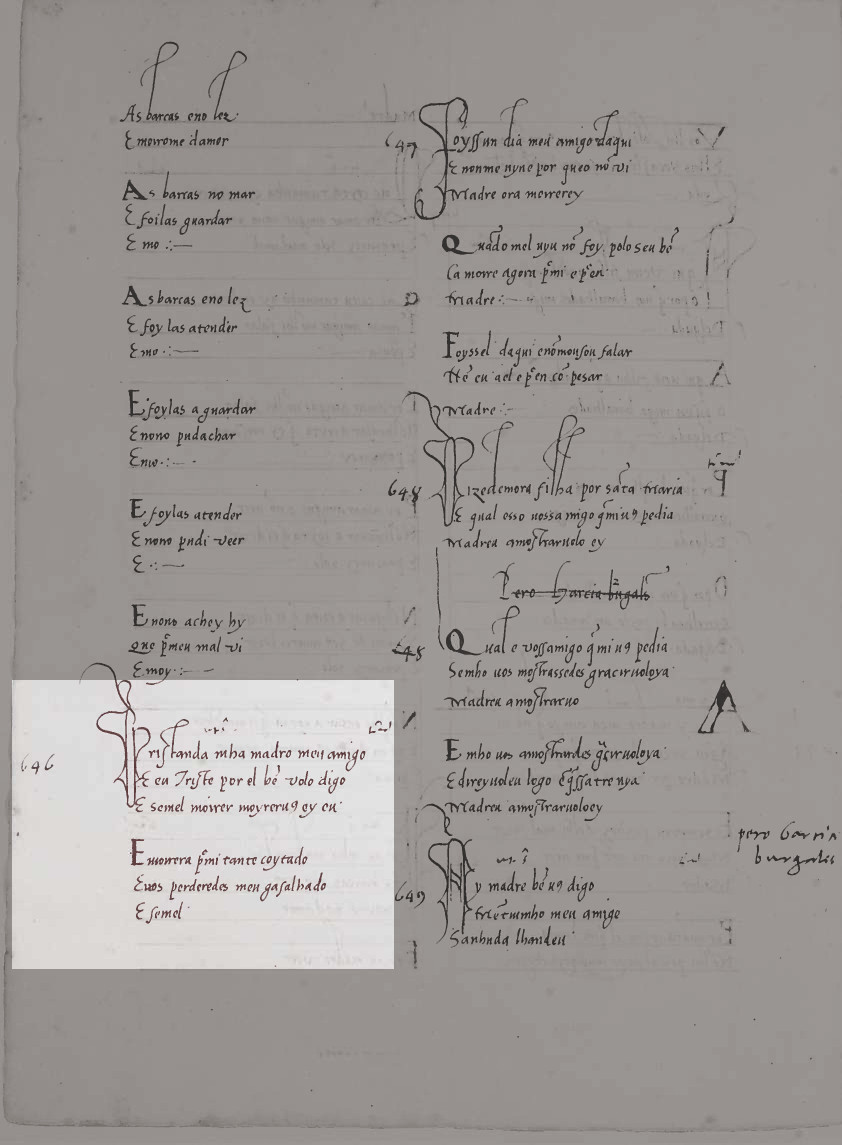 As barcas eno lez
E moirome damor
As barcas no mar
E foilas guardar
E mo
As barcas eno lez
E foy las atender
E mo
E foylas aguardar
E nono pudachar
E mo
E foylas atender
E nono pudi veer
E
E nono achey hy
Que p̃meu mal vi
E moy
646
Tristanda mha madro meu amigo
E eu Triste por el bẽ volo digo
E semel moirer moyreruꝯ ey eu
E morrera p̃mi tanto coytado
E uos perderedes meu gasalhado
E semel
647
Foyssun dia meu amigo daqui
E nonme uyne por queo nõ vi
Madre ora morrerey
Quãdo mel uyu nõ foy polo seu bẽ
Ca morre agora p̃mi e p̃en
Madre
Foyssel daqui enõmousou falar
Madre
648
Dizedemora filha por sãta maria
E qual esso uossamigo q̃mi uꝯ pedia
Madreu amostraruolo ey
Pero Garcia bũgalẽs
648
Qual e vossamigo q̃mi uꝯ pedia
Madreu amostraruo
E mho uos amostrardes
Madreu amostraruoloey
pero Garcia
burgales
649
Ay madre bẽ uꝯ digo
meu amigo
Sanhuda lhandeu